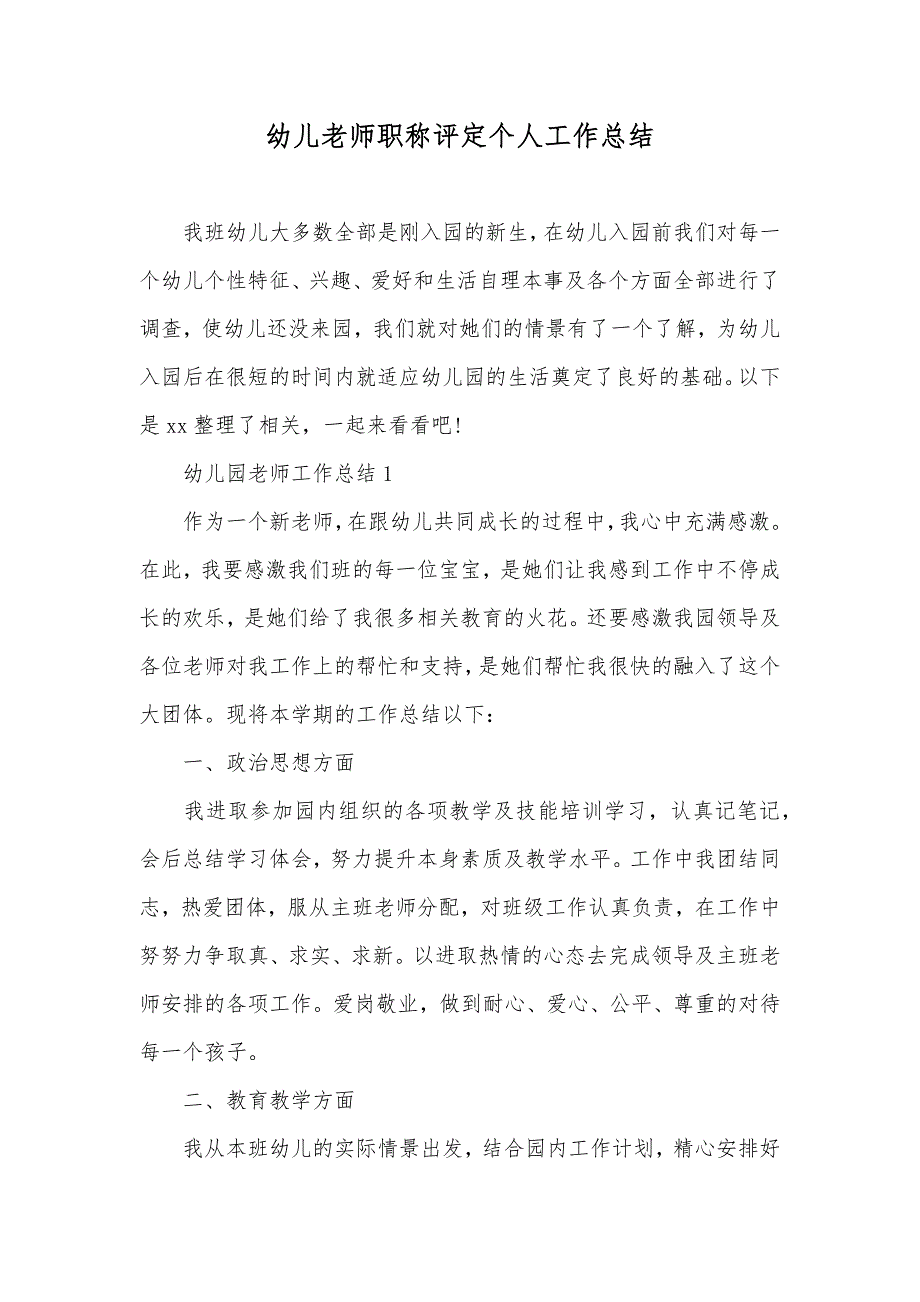 幼儿老师职称评定个人工作总结
我班幼儿大多数全部是刚入园的新生，在幼儿入园前我们对每一
个幼儿个性特征、兴趣、爱好和生活自理本事及各个方面全部进行了
调查，使幼儿还没来园，我们就对她们的情景有了一个了解，为幼儿
入园后在很短的时间内就适应幼儿园的生活奠定了良好的基础。以下
是 xx 整理了相关，一起来看看吧!
幼儿园老师工作总结 1
作为一个新老师，在跟幼儿共同成长的过程中，我心中充满感激。
在此，我要感激我们班的每一位宝宝，是她们让我感到工作中不停成
长的欢乐，是她们给了我很多相关教育的火花。还要感激我园领导及
各位老师对我工作上的帮忙和支持，是她们帮忙我很快的融入了这个
大团体。现将本学期的工作总结以下：
一、政治思想方面
我进取参加园内组织的各项教学及技能培训学习，认真记笔记，
会后总结学习体会，努力提升本身素质及教学水平。工作中我团结同
志，热爱团体，服从主班老师分配，对班级工作认真负责，在工作中
努努力争取真、求实、求新。以进取热情的心态去完成领导及主班老
师安排的各项工作。爱岗敬业，做到耐心、爱心、公平、尊重的对待
每一个孩子。
二、教育教学方面
我从本班幼儿的实际情景出发，结合园内工作计划，精心安排好